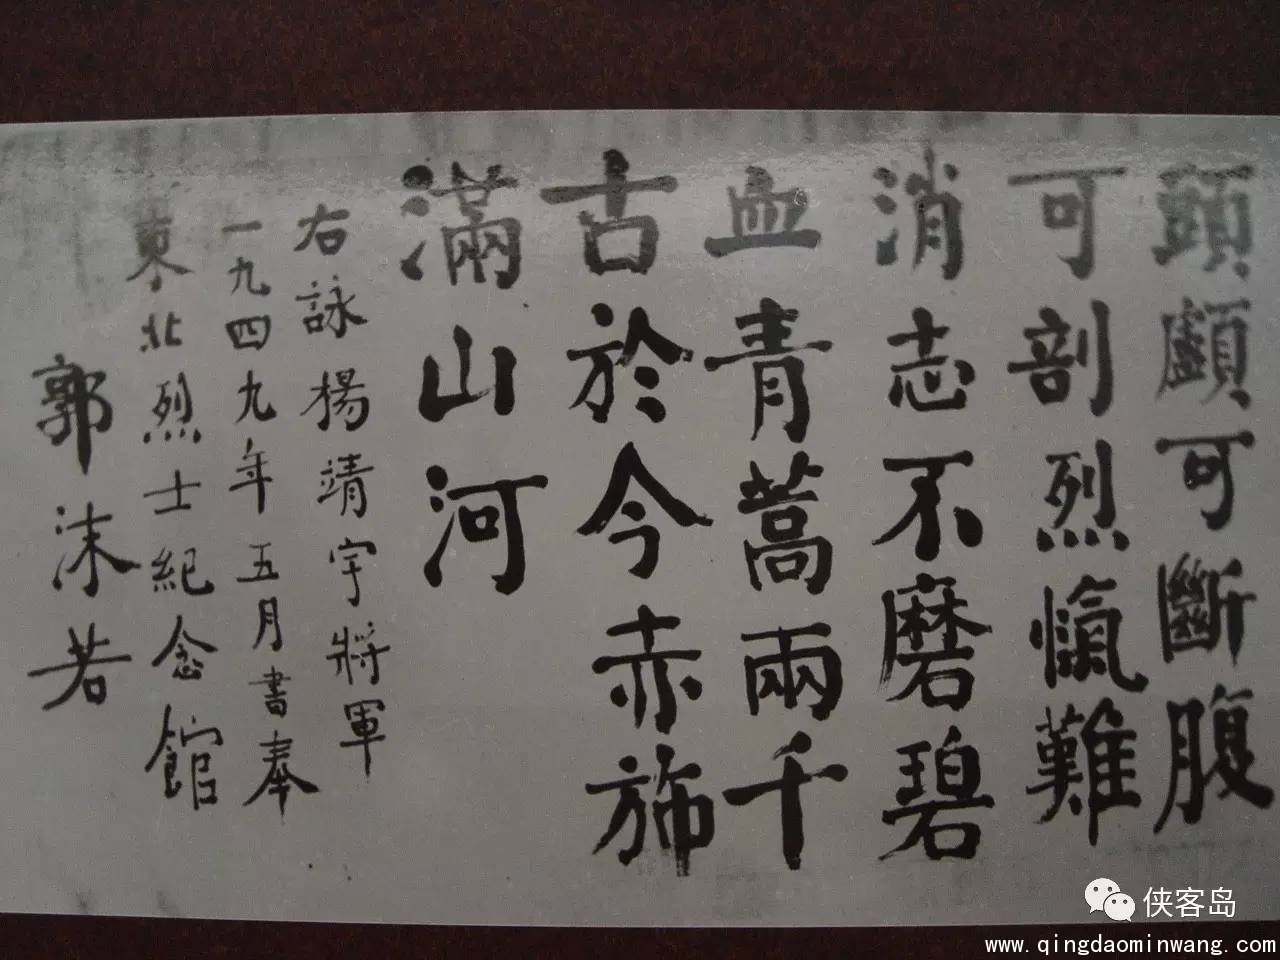 頭顱可斷腹
可剖烈愾難
消志不磨碧
血青蒿兩千
古於今赤旆
滿山河
右詠楊靖宇將軍
一九四九年五月書奉
東北烈士紀念館
郭沫若
侠客岛
www.qingdaominwang.com